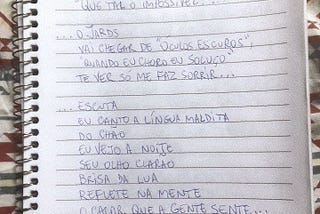 "QUE TAL O IMPOSSÍVEL"...
... O JARDS
VAI CHEGAR DE "ÓCULOS ESCUROS",
"QUANDO EU CHORO EU SOLUÇO"
TE VER SÓ ME FAZ SORRIR...
... ESCUTA
EU CANTO A LÍNGUA MALDITA
DO CHÃO
EU VEJO A NOITE
SEU OLHO CLARÃO
BRISA DA LUA
REFLETE NA MENTE
QUE A GENTE SENTE...